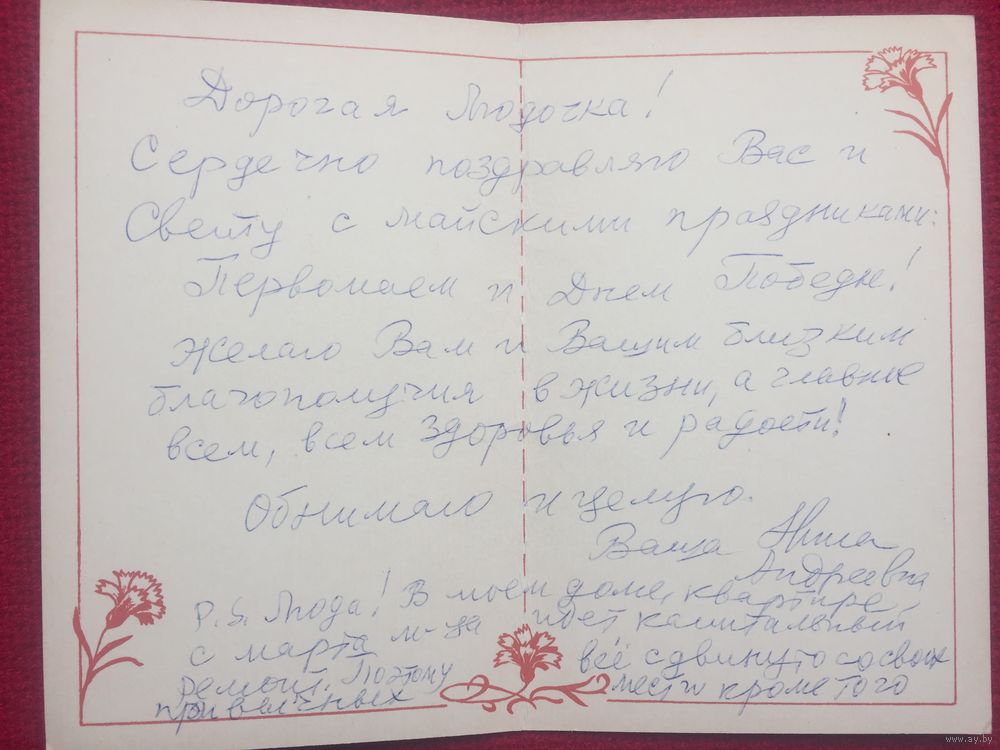 Дорогая Людочка!
Сердечно поздравляю Вас и
Свету с майскими праздниками:
Первомаем и Днем Победы!
Желаю Вам и Вашим близким
благополучия в жизни, а главное
всем, всем здоровья и радости!
Обнимаю и целую.
Ваша Нина
Андреевна
P.S. Люда! В моем доме, квартире
с марта м-ца идет капитальный
ремонт. Поэтому всё сдвинуто со своих
привычных мест и кроме того
www.ay.by